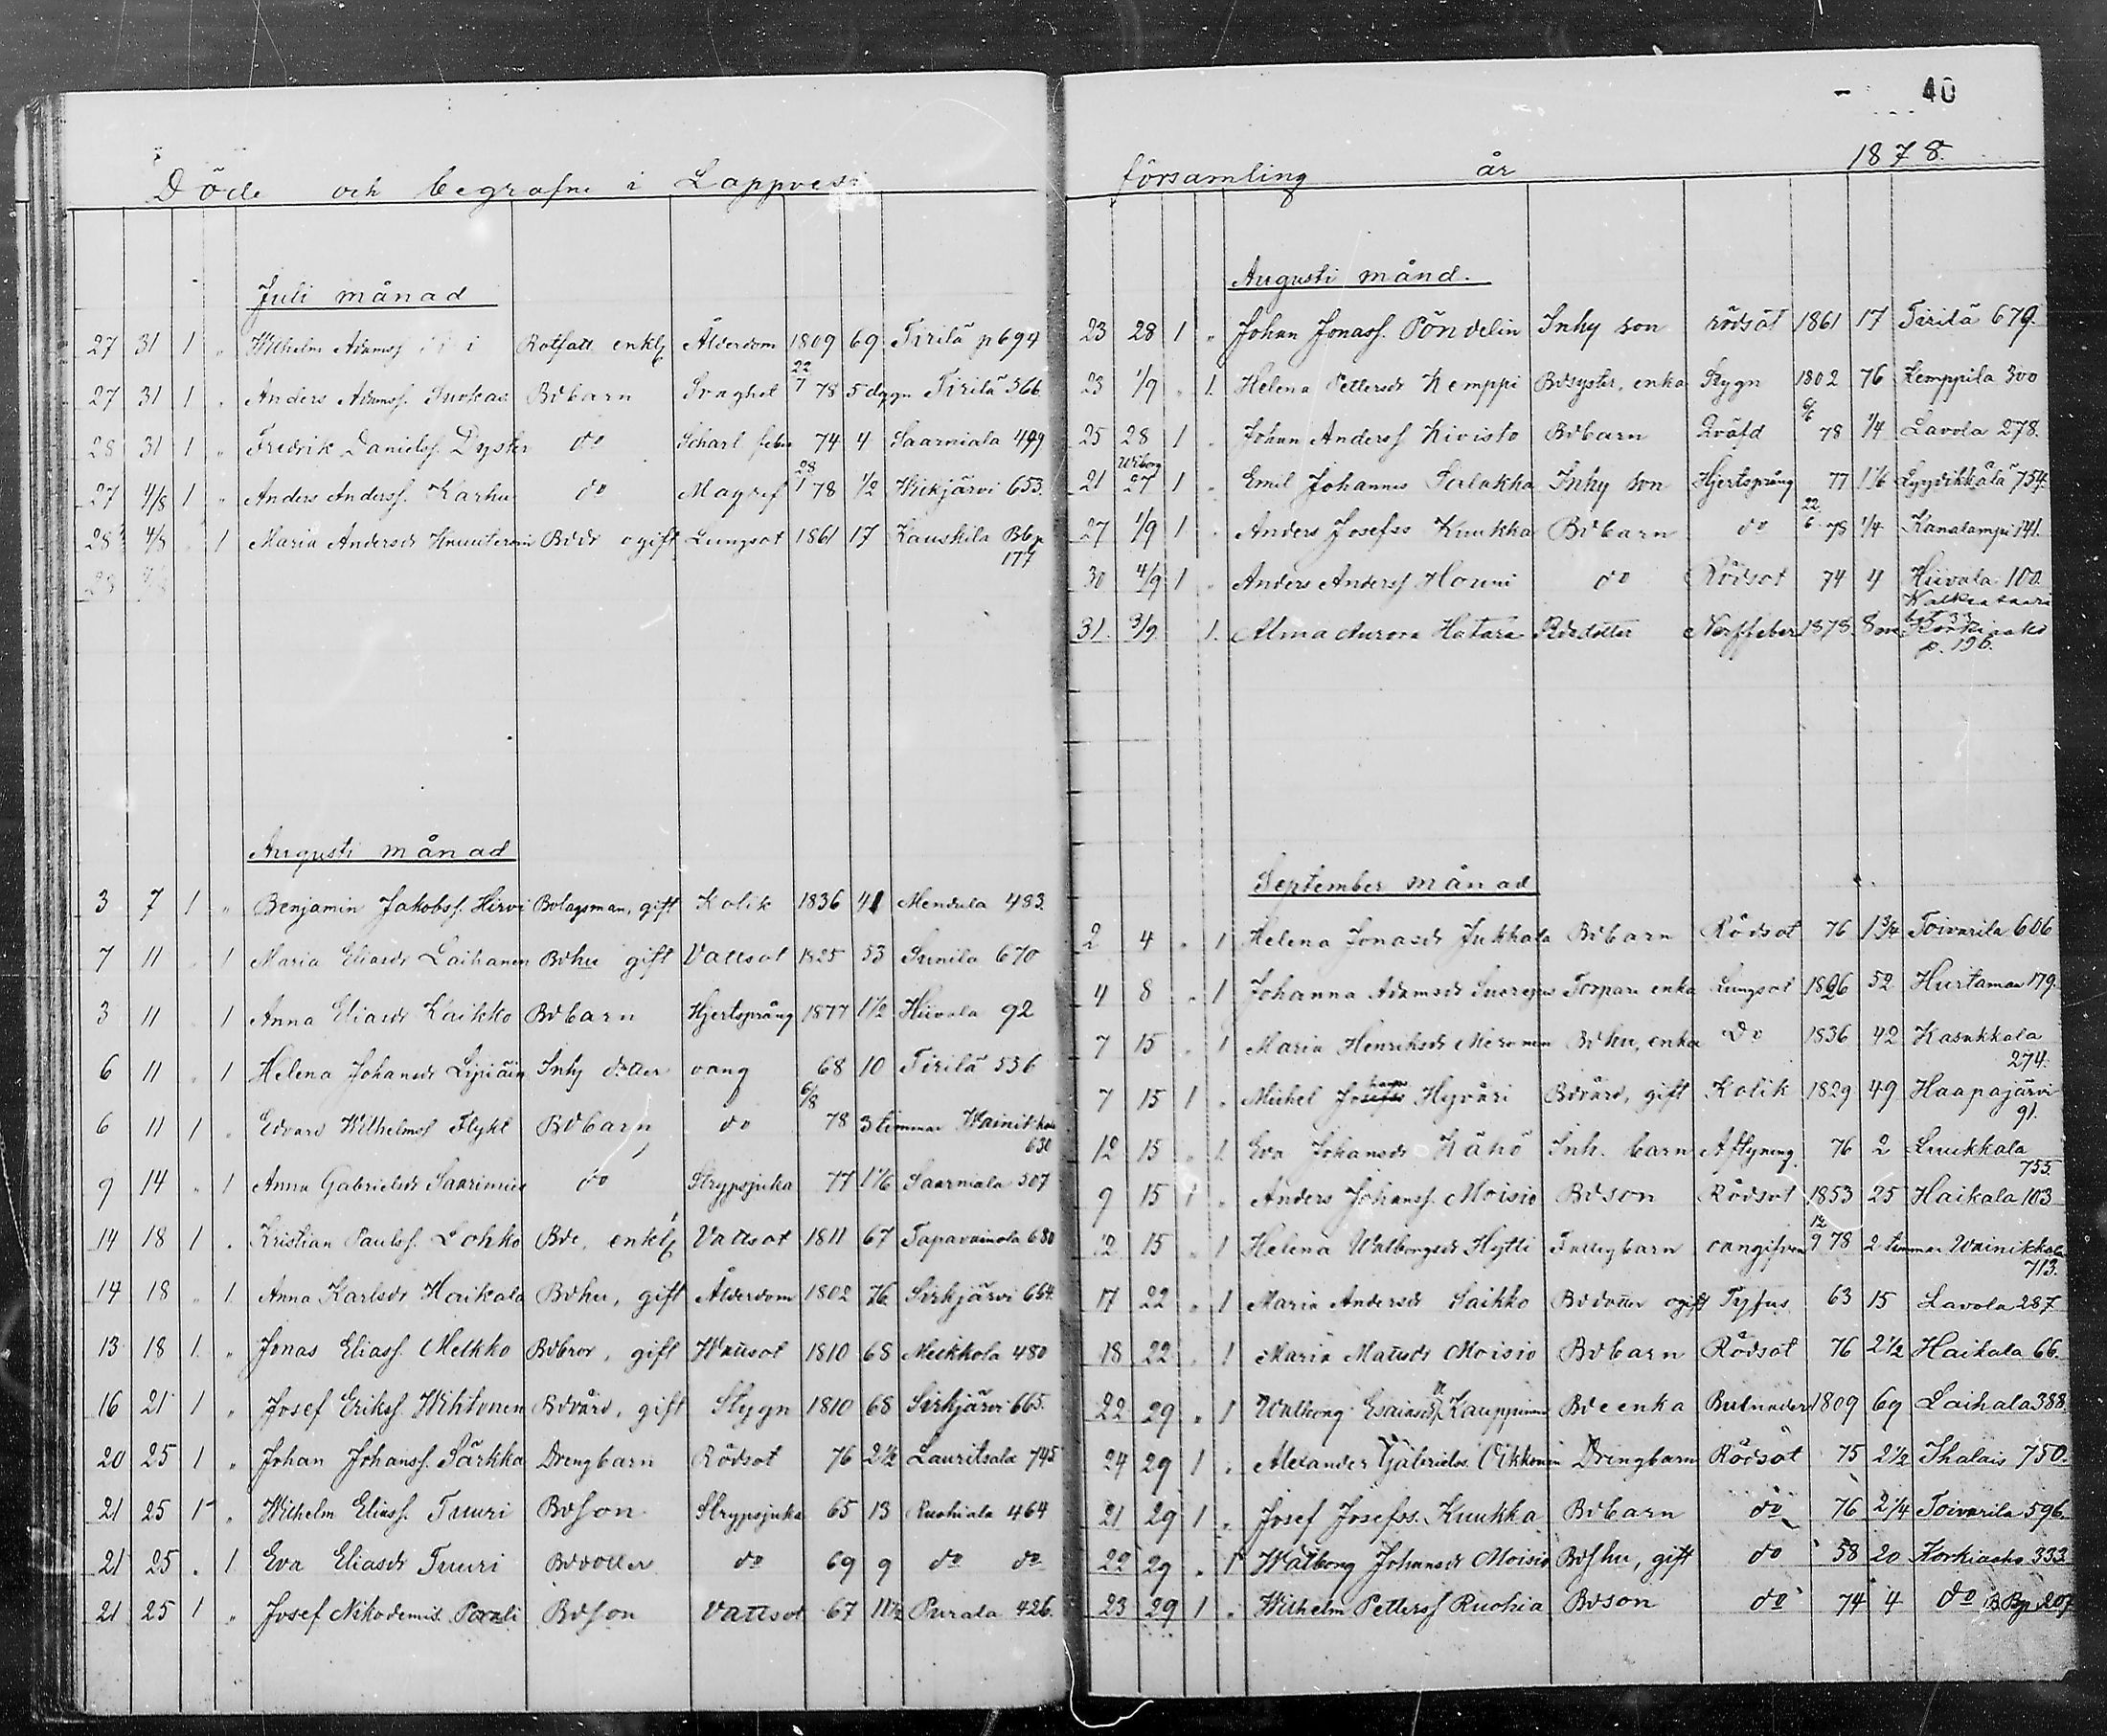 Döde och begrafne i Lappvesi
Juli månad
27 31 1 " Wilhelm Adamss. Rotfatt. enkl. Ålderdom 1809 69 Tirilä p 694
27 31 1 " Anders Adamss. Suokas Bdbarn Svaghet 22/7 78 5 dygn Tirilä 566
28 31 1 " Fredrik Danielss. Dyster do Scharl. feber 74 4 Saarniala 499
27 4/8 1 " Anders Anderss. Karhu do Magref 28/1 78 1/2 Wickjärvi 653.
28 4/8 1 Maria Andersdr Bddr ogift Lungsot 1861 17 Kauskila Bb p
177
Augusti månad
3 7 1 " Benjamin Jakobss. Hirvi Bolagsman, gift Kolik 1836 41 Mendula 483.
7 11 " 1 Maria Eliasdr Laihanen Bdhu gift Vattsot 1825 53 Sunila 670
3 11 " 1 Anna Eliasdr Kaikko Bdbarn Hjertsprång 1877 1 1/2 Hiivala 92
6 11 " 1 Helena Johansdr Lipiäin Inhy dotter vang 68 10 Tirilä 536
6 11 1 " Edvard Wilhelmss Flykt Bdbarn do 6/8 78 3 timmar Wainikkala
630
9 14 " 1 Anna Gabrielsdr Saarimies do Strypsjuka 77 1 1/6 Saarniala 507
14 18 1 " Kristian Paulss. Lohko Bde, enkl. Vattsot 1811 67 Tapavainola 680
14 18 " 1 Anna Karlsdr Haikala Bdhu, gift Ålderdom 1802 76 Sirkjärvi 664
13 18 1 " Jonas Eliass. Melkko Bdbror, gift Wattsot 1810 68 Melkkola 480
16 21 1 " Josef Erikss. Wihtonen Bdvärd, gift Stygn 1810 68 Sirkjärvi 665.
20 25 1 " Johan Johanss. Särkka Drengbarn Rödsot 76 2 1/2 Lauritsala 745
21 25 1 " Wilhelm Eliass. Tuuri Bdson Strypsjuka 65 13 Ruohiala 464
21 25 " 1 Eva Eliasdr Tuuri Bddotter do 69 9 do do
21 25 1 " Josef Nikodemus. Bdson Vattsot 67 11 1/2 Purala 426.
40
församling år 1878.
Augusti månd.
23 28 1 " Johan Jonass. Pöndelin Inhy son rödsot 1861 17 Tirilä 679.
23 1/9 " 1. Helena Pettersdr Kemppi Bdsyster, enka Stygn 1802 76 Kemppila 300
25 28 1 " Johan Anderss Kivisto Bdbarn Qväfd 6/6 78 1/4 Lavola 278.
Wiborg
21 27 1 " Emil Johannes Inhy son Hjertsprång 77 1 1/6 Lyydikkälä 754.
27 1/9 1 " Anders Josefss Kuukka Bdbarn do 22/6 78 1/4 Kanalampi 141.
30 4/9 1 " Anders Anderss Houni do Rödsot 74 4 Hiivala 100.
31. 3/9 1. Alma Aurora Hatara Bdedotter Nerffeber 1878 8 Korkiaaho
p. 196.
September månad
2 4 " 1 Helena Jonasdr Jukkala Bdbarn Rödsot 76 1 3/4 Toivarila 606
4 8 " 1 Johanna Adamsdr Torpare enka Lungsot 1826 52 Hurtamaa 179.
7 15 " 1 Maria Henriksdr Meronen Bdhu, enka Do 1836 42 Kasukkala
274.
7 15 1 " Mickel Johans Hyväri Bdvärd, gift Kolik 1829 49 Haapajärvi
91.
12 15 " 1. Eva Johansdr Kähö Inh. barn Aftyning 76 2 Luukkala
755.
9 15 1 " Anders Johanss. Moisio Bdson Rödsot 1853 25 Haikala 103
12 15 " 1 Helena Walborgsdr Hytti Fattigbarn oangifven 12/9 78 2 timmar Wainikkala
713.
17 22 " 1 Maria Andersdr Saikko Bddotter ogift Tyfus 63 15 Lavola 287
18 22 " 1 Maria Mattsdr Moisio Bdbarn Rödsot 76 2 1/2 Haikala 66.
22 29 " 1 Walborg Esaiasdr Kauppinen Bde enka 1809 69 Laihala 388
24 29 1 " Alexander Gabrielss. Vikkonen Drengbarn Rödsot 75 2 1/2 Ihalais 750.
21 29 1 " Josef Josefss. Kuukka Bdbarn do 76 2 1/4 Toivarila 596.
22 29 " 1 Walborg Johansdr Moisio Bdshu, gift do 58 20 Korkiaaho 333
23 29 1 " Wilhelm Petterss Ruohia Bdson do 74 4 do B Bp 207